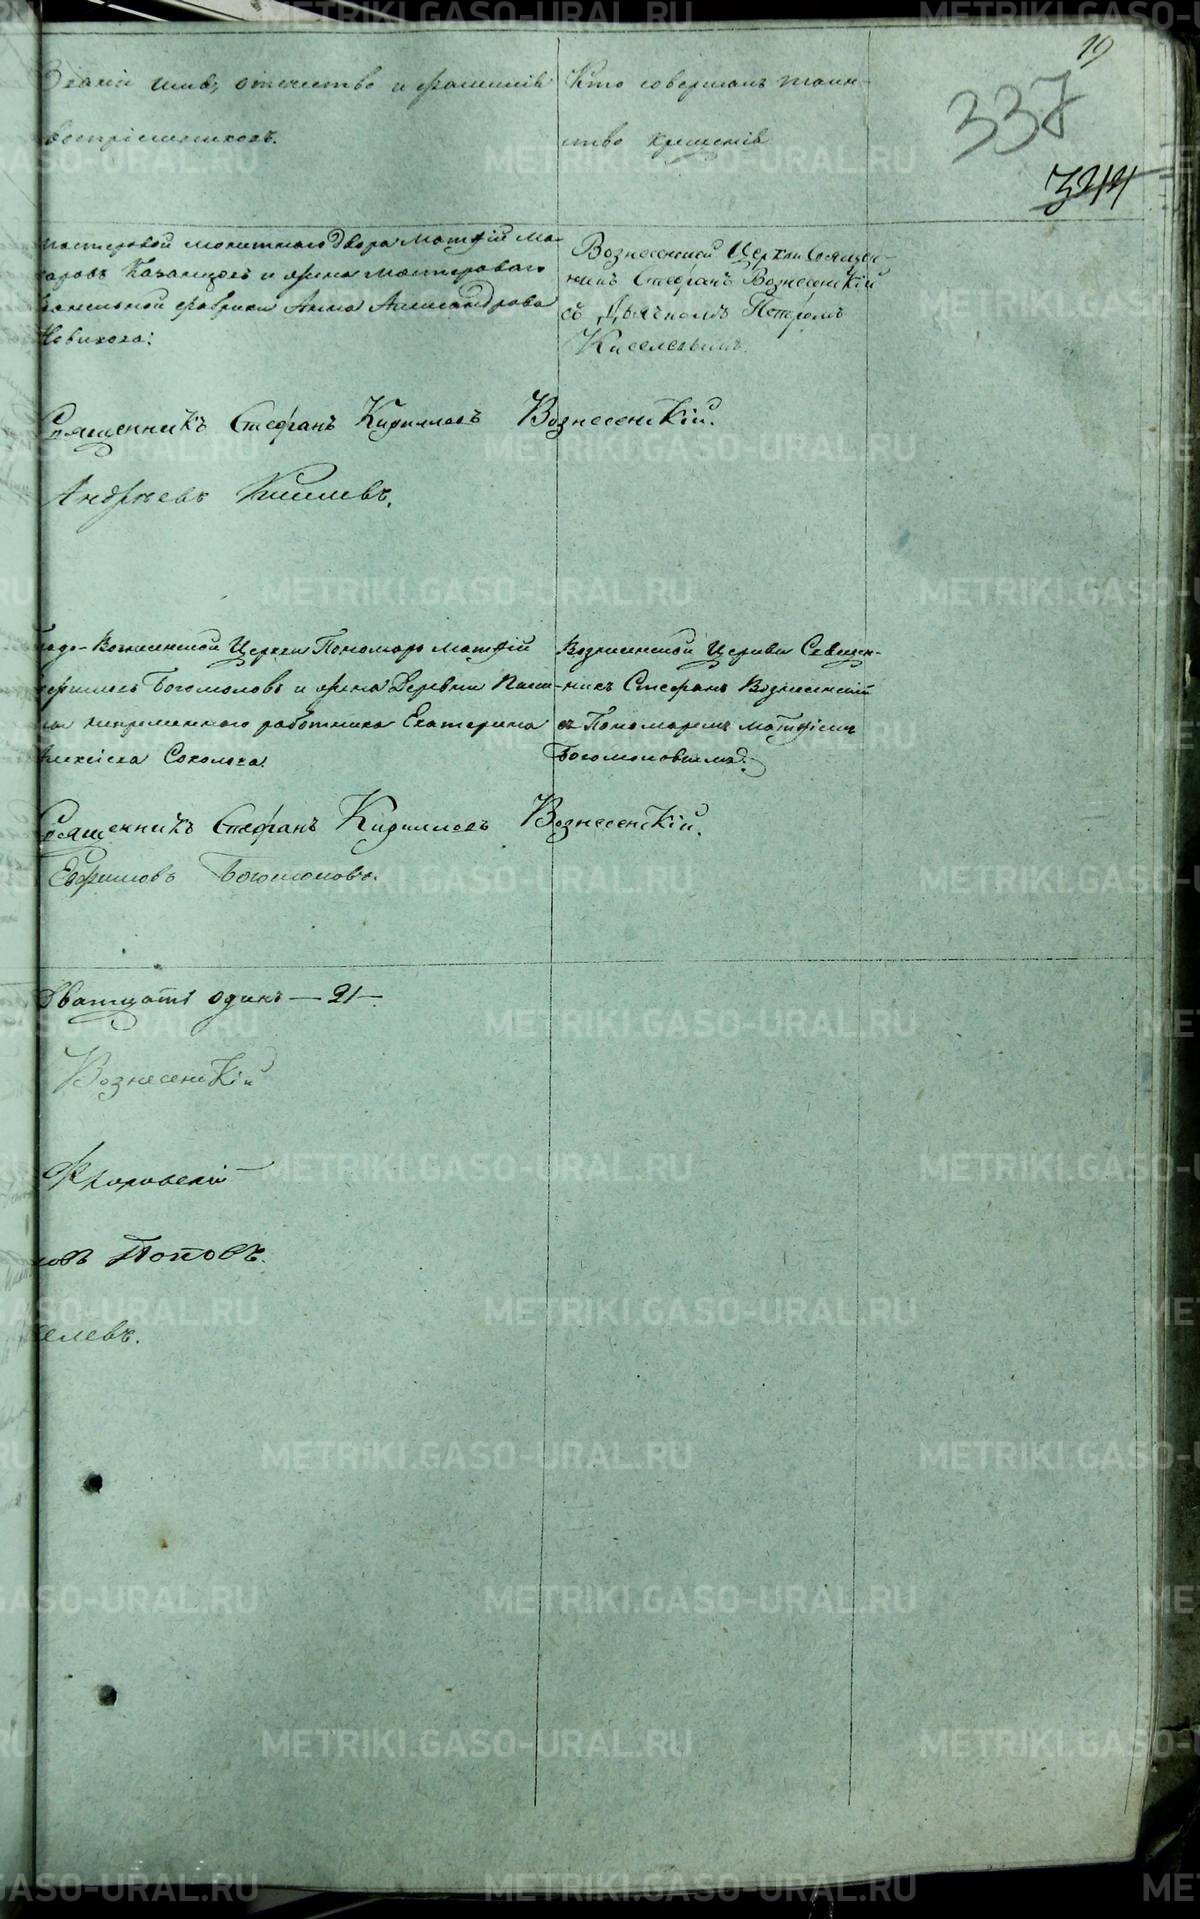 19
337
344
Званіе имя, отечество и фамилія
воспріемниковъ.
Кто совершалъ таин-
ство крещенія
мастеровой монетнаго двора Матфій Ма-
каровъ Казанцовъ и жена мастероваго
Анна Александрова
Новикова:
Вознесенской Церкви Священ-
никъ Стефанъ Вознесенскій
съ Дьячкомъ Петромъ
Киселевымъ
Священникъ Стефанъ Кирилловъ Вознесенскій.
Андреевъ Киселевъ.
градо-Вознесенской Церкви Пономарь Матфій
Ефимовъ Богомоловъ и жена Деревни
непременнаго работника Екатерина
Алексіева Соколова.
Вознесенской Церкви Священ-
никъ Стефанъ Вознесенскій
съ Пономаремъ Матфіемъ
Богомоловымъ.
Священникъ Стефанъ Кирилловъ Вознесенскій.
Ефимовъ Богомоловъ.
Дватцать одинъ — 21 —.
Вознесенскій
Флоровскій
ловъ Поповъ.
селевъ.
METRIKI.GASO-URAL.RU